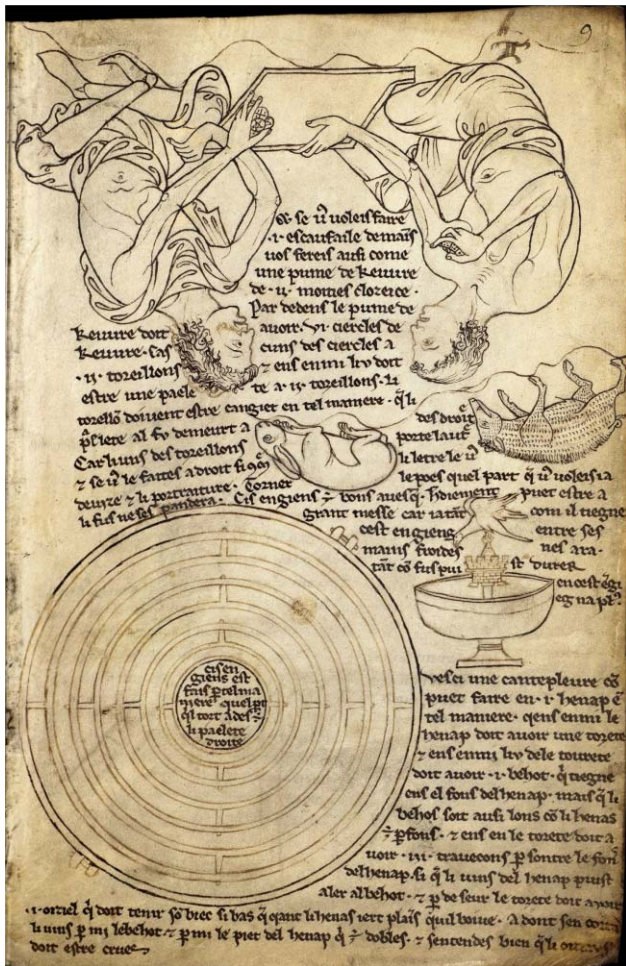 9
& se vꝰ voleis faire
·i· escaufaile de mais
vos fereis ausi come
une pume de keuvre
de ·ii· moities clozeice ·
Par dedens le pume de
keuvre doit avoir · vi· ciercles de
keuvre · cas cuns des ciercles a
·ii· toreillons ⁊ ens en mi liv doit
estre une paele te a ·ii· toreillons · li
torellō doivent estre cangiet en tel maniere · q̄ li
paelete al fv demeurt a des droite
Car li uns des toreillons porte lautͤ
⁊ se vꝰ le faites a droit si 9m̄ li letre le vꝰ
devize ⁊ li portraiture · Torner le poes quel part q̄ vꝰ voleis ia
li fus ne ses pandera · Cis engiens ÷ bons a vesq̄ · hdiement puet estre a
grant messe car ia tāt com il tiegne
cest engieng entre ses
mains froides nes ara ·
tāt cō fus puist durer
en cest ēgi
eg na pl9
cis en
giens est
fais p̄ tel ma
niere quel p̄t
q̄l tort ades ÷
li paelete
droite
Vesci une cantepleure cō
puet faire en · i· henap ē
tel maniere · qens en mi le
henap doit avoir une torete
⁊ ens en mi liv de le tourete
doit avoir · i· behot · q̄ tiegne
ens el fons del henap · mais q̄ li
behos soit ausi lons cō li henas
÷ p̄fons · ⁊ ens en le torete doit a
voir · iii· travecons p̄ sontre le fons
del henap · si q̄ li vins del henap puist
aler al behot · ⁊ p̄ de seur le torete doit avoir
·i· oiziel q̄ doit tenir sō biec si bas q̄ qant li henas iert plais quil boive · A dont sen
li vins p̄ mi le behot · ⁊ p̄ mi le piet del henap q̄ ÷ dobles · ⁊ sentendes bien q̄ li
doit estre crues